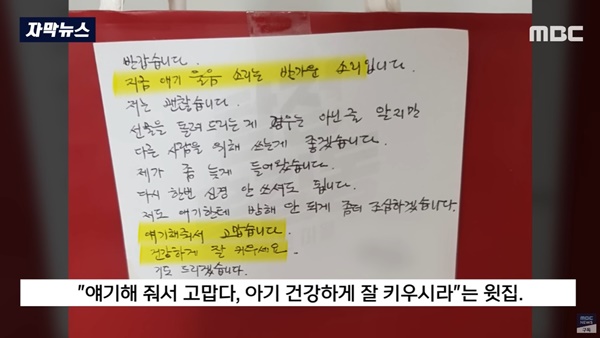 자막뉴스
MBC
반갑습니다.
지금 애기 울음 소리는 반가운 소리입니다.
저는 괜찮습니다.
선물을 돌려 드리는게 경우는 아닌 줄 알지만
다른 사람을 위해 쓰는게 좋겠습니다.
제가 좀 늦게 들어왔습니다.
다시 한번 신경 안 쓰셔도 됩니다.
저도 애기한테 방해 안 되게 좀더 조심하겠습니다.
얘기해줘서 고맙습니다.
건강하게 잘 키우세요
기도 드리겠습니다.
"얘기해 줘서 고맙다, 아기 건강하게 잘 키우시라"는 윗집.
MBC NEWS
구독